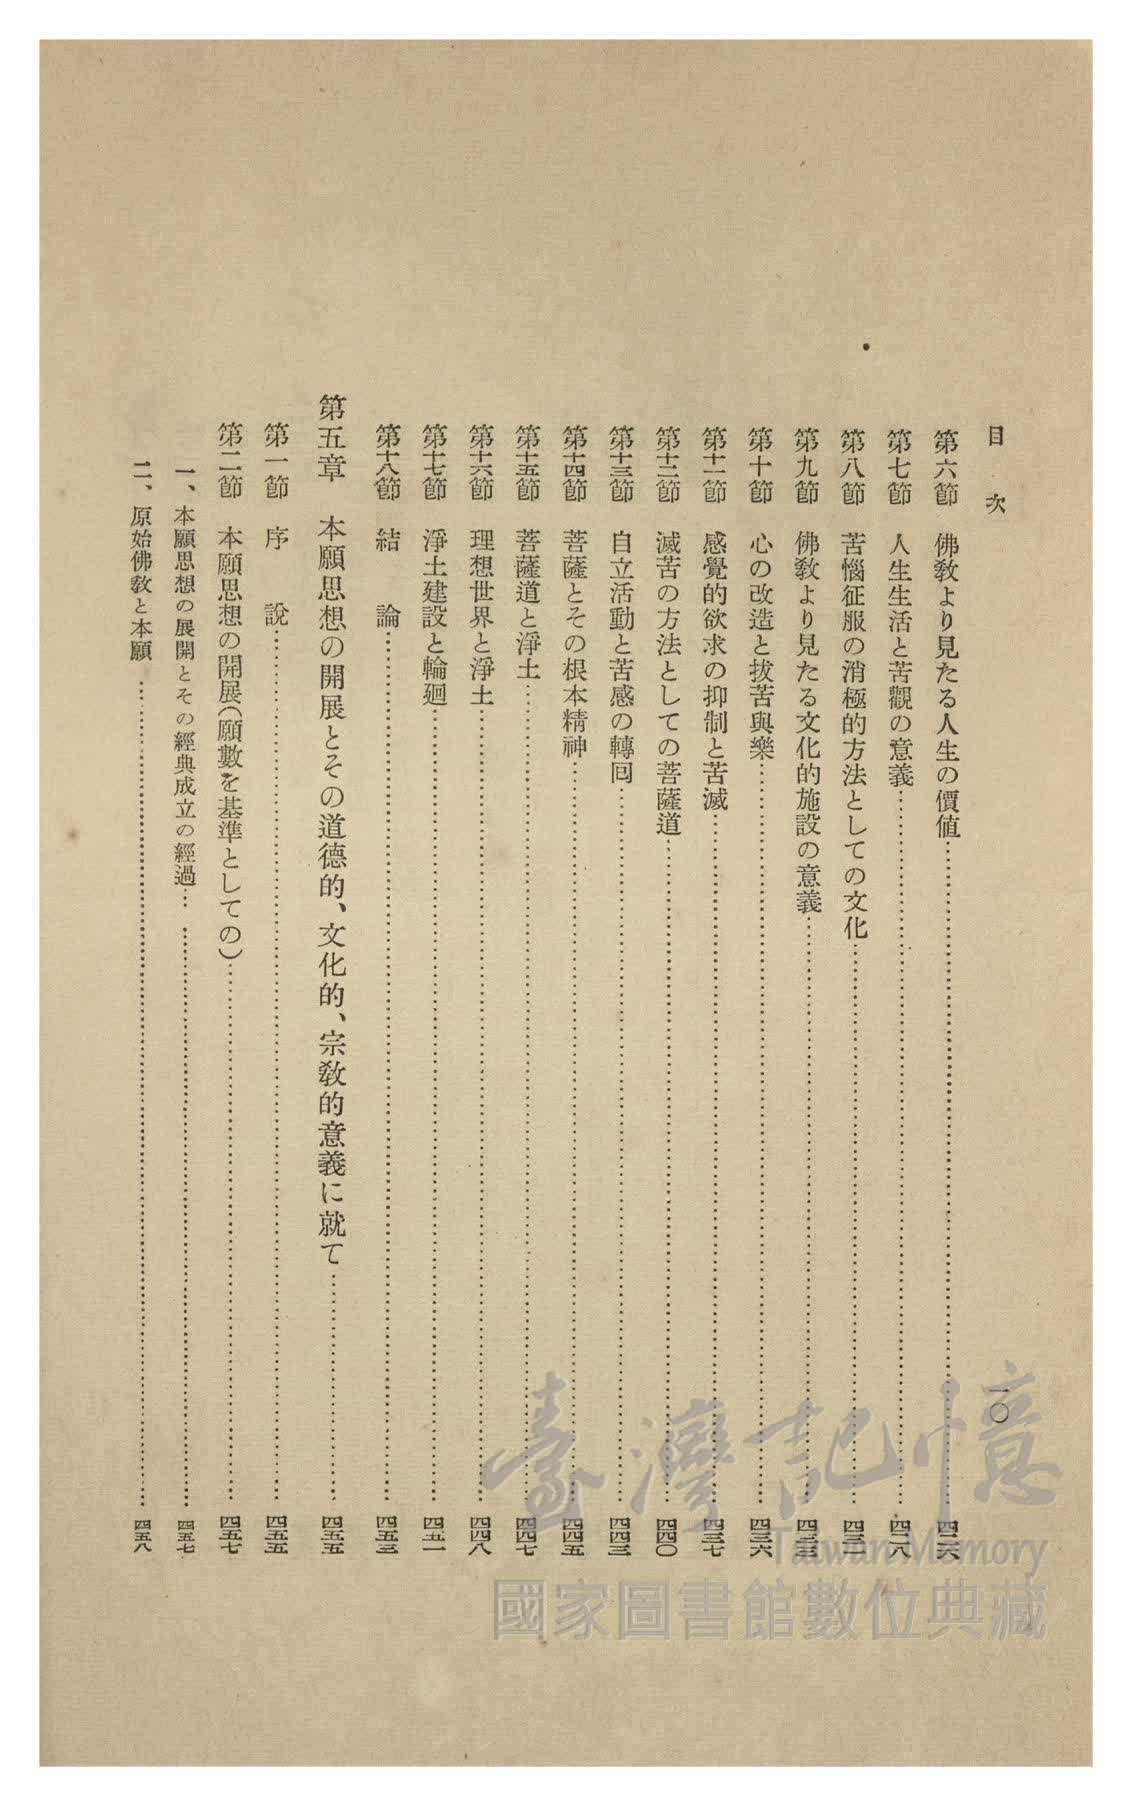 目次
一〇
第六節 佛敎より見たる人生の價値……四二六
第七節 人生生活と苦觀の意義……四二八
第八節 苦惱征服の消極的方法としての文化……四三一
第九節 佛敎より見たる文化的施設の意義……四三三
第十節 心の改造と拔苦與樂……四三六
第十一節 感覺的欲求の抑制と苦滅……四三七
第十二節 滅苦の方法としての菩薩道……四四〇
第十三節 自立活動と苦感の轉囘……四四三
第十四節 菩薩とその根本精神……四四五
第十五節 菩薩道と淨土……四四七
第十六節 理想世界と淨土……四四八
第十七節 淨土建設と輪廻……四五一
第十八節 結論……四五三
第五章 本願思想の開展とその道德的、文化的、宗敎的意義に就て……四五五
第一節 序說……四五五
第二節 本願思想の開展(願數を基準としての)……四五七
一、本願思想の展開とその經典成立の經過……四五七
二、原始佛敎と本願……四五八
臺灣記憶
Taiwan Memory
國家圖書館數位典藏